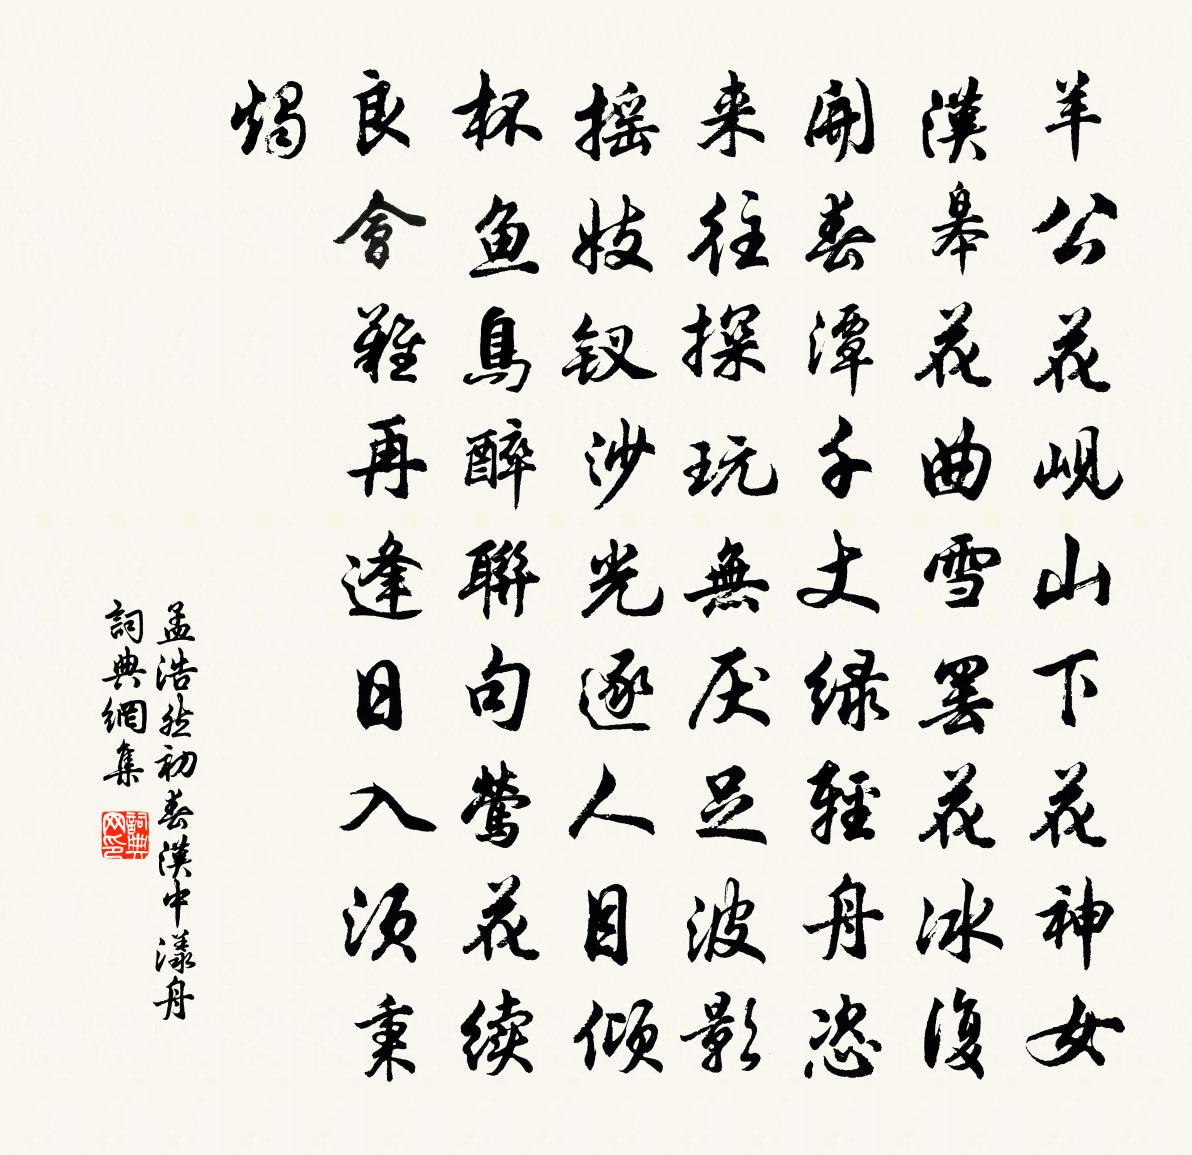 羊公花岘山下花神女
漢皋花曲雪罢花冰復
開春潭千丈绿輕舟恣
来往探玩無厌足波影
摇妓钗沙光逐人目倾
杯鱼鳥醉聯句莺花续
良會難再逢日入须秉
燭
孟浩然初春漢中漾舟
詞典網集
詞典网印